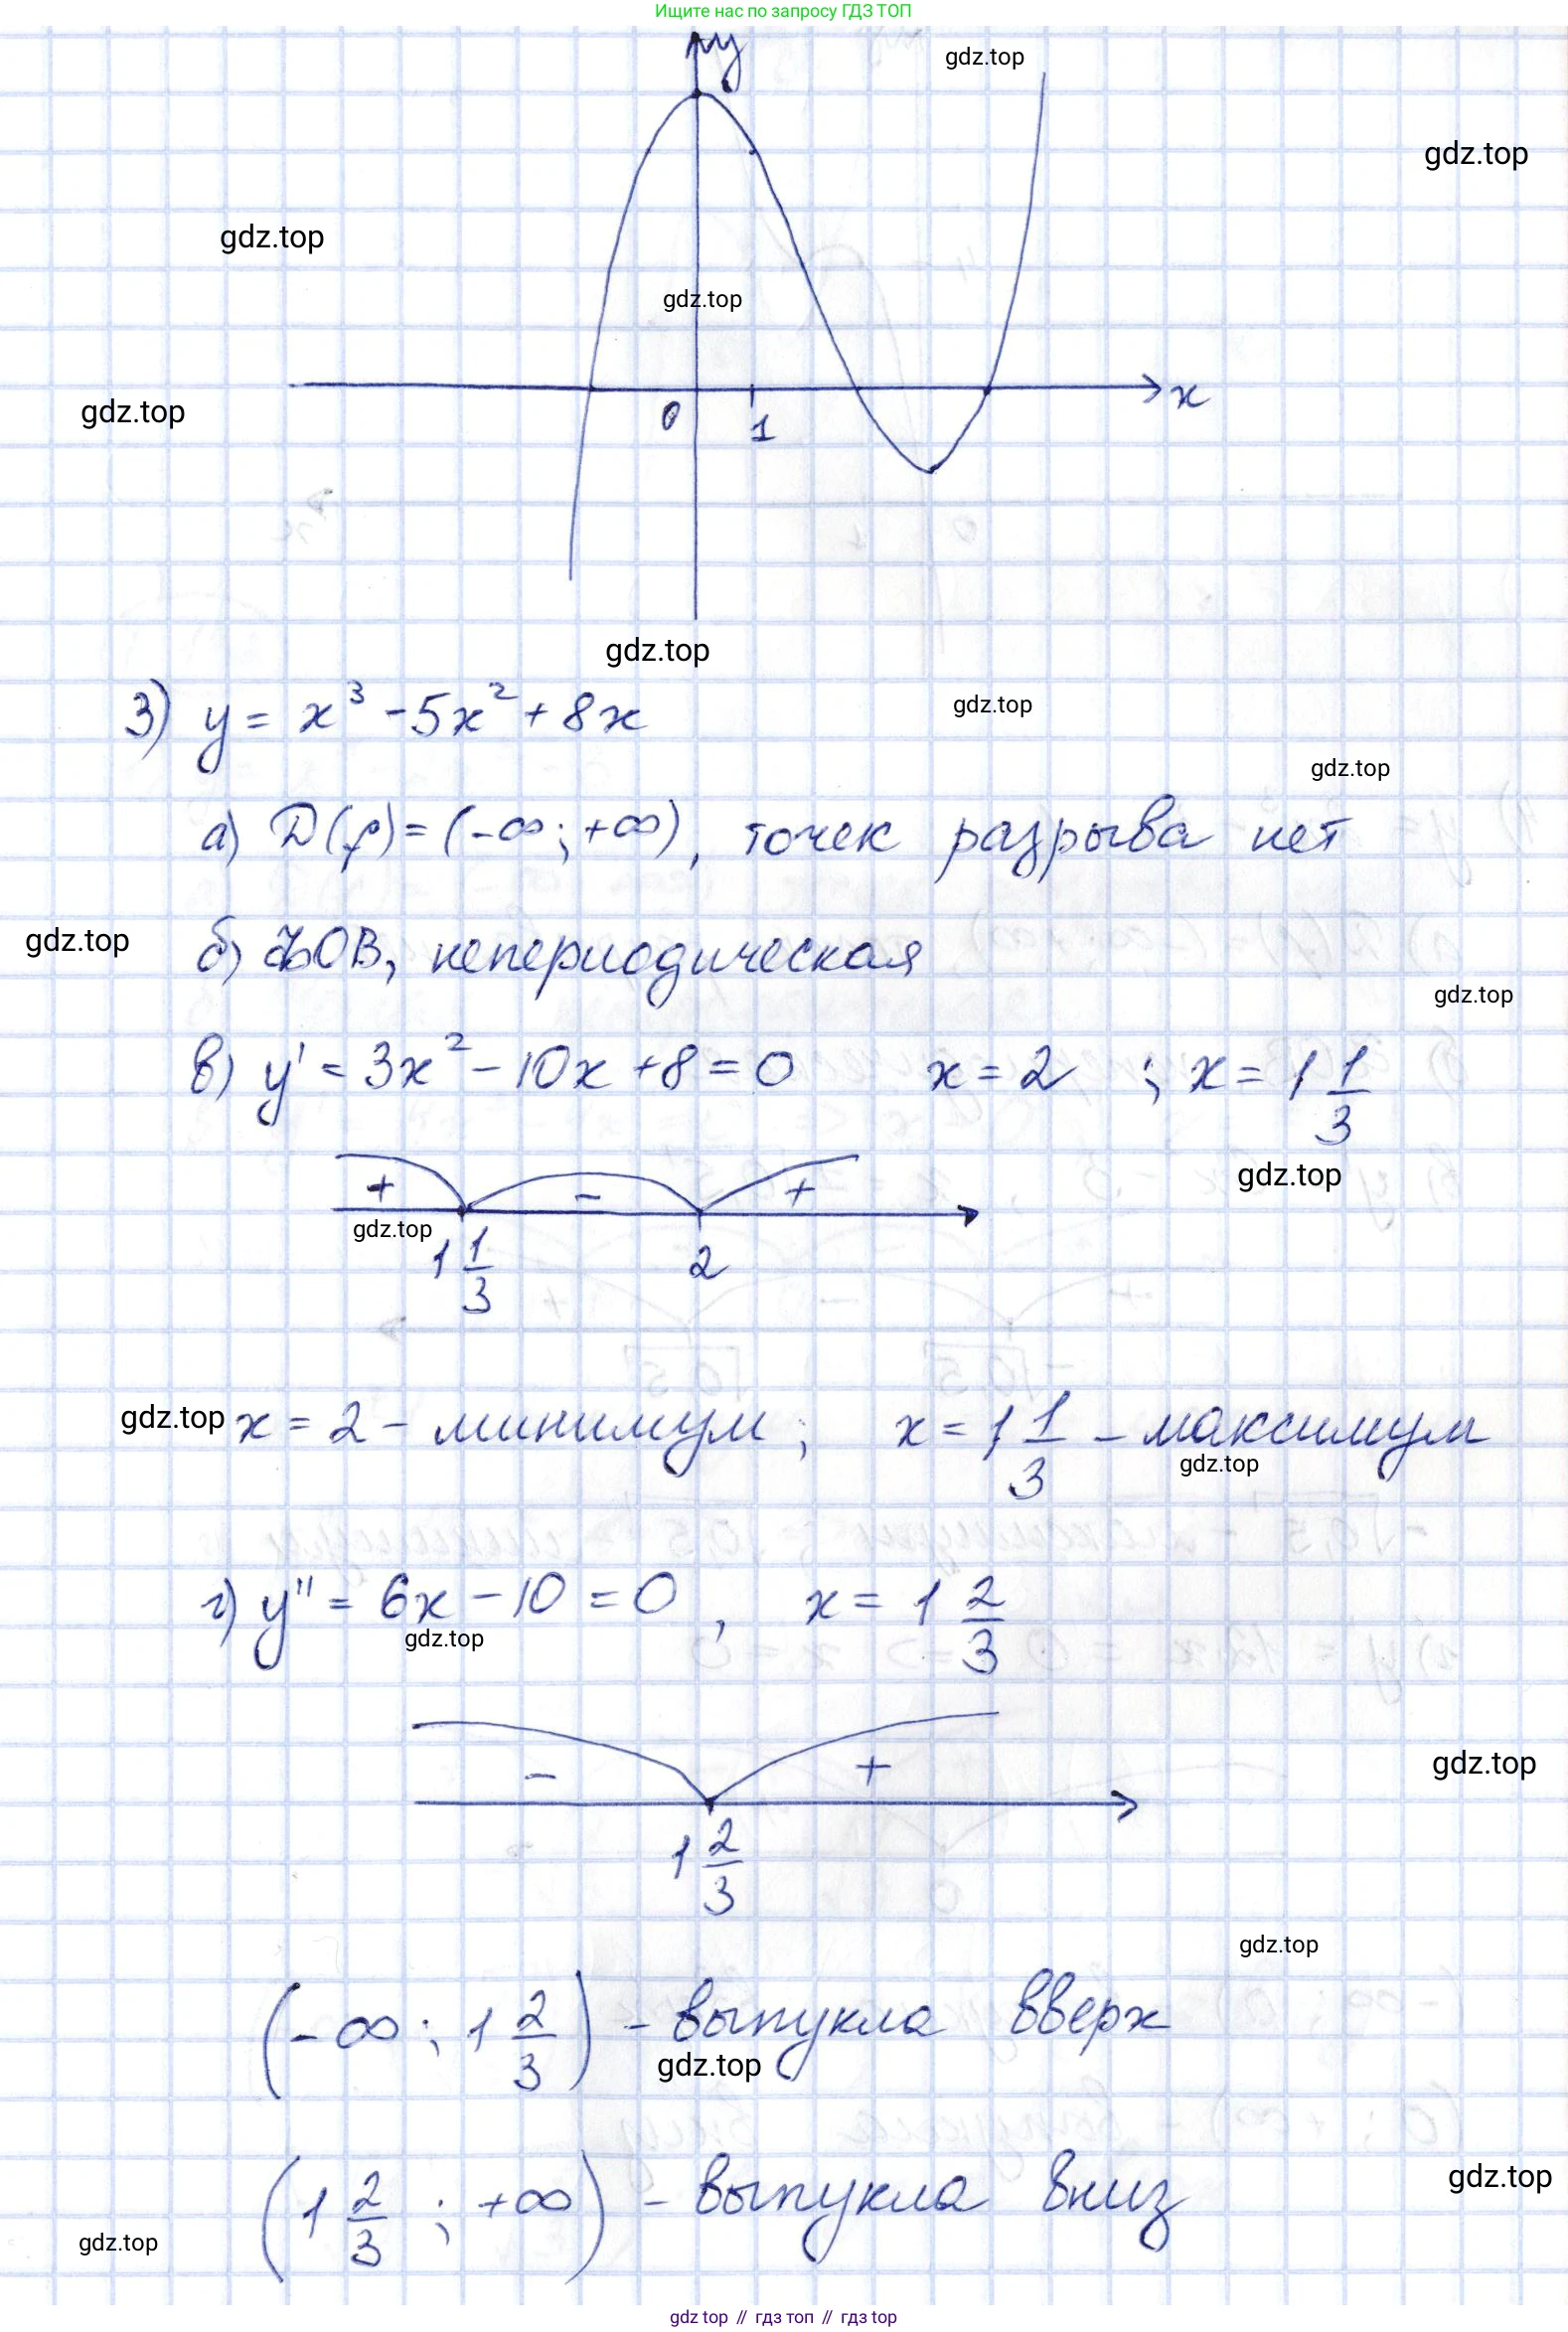 Ищите нас по запросу ГДЗ ТОП
y
gdz.top
gdz.top
gdz.top
gdz.top
x
gdz.top
0
1
gdz.top
3) y = x³ - 5x² + 8x
gdz.top
gdz.top
а) D(f) = (-∞; +∞), точек разрыва нет
gdz.top
б) ФОВ, непериодическая
gdz.top
в) y' = 3x² - 10x + 8 = 0 x = 2 ; x = 1 1/3
gdz.top
+ - +
gdz.top
1 1/3 2
gdz.top
x = 2 - минимум; x = 1 1/3 - максимум
gdz.top
г) y'' = 6x - 10 = 0, x = 1 2/3
gdz.top
- +
gdz.top
1 2/3
gdz.top
(-∞; 1 2/3) - выпукла вверх
gdz.top
(1 2/3 ; +∞) - выпукла вниз
gdz.top
gdz.top
gdz top // гдз топ // гдз top